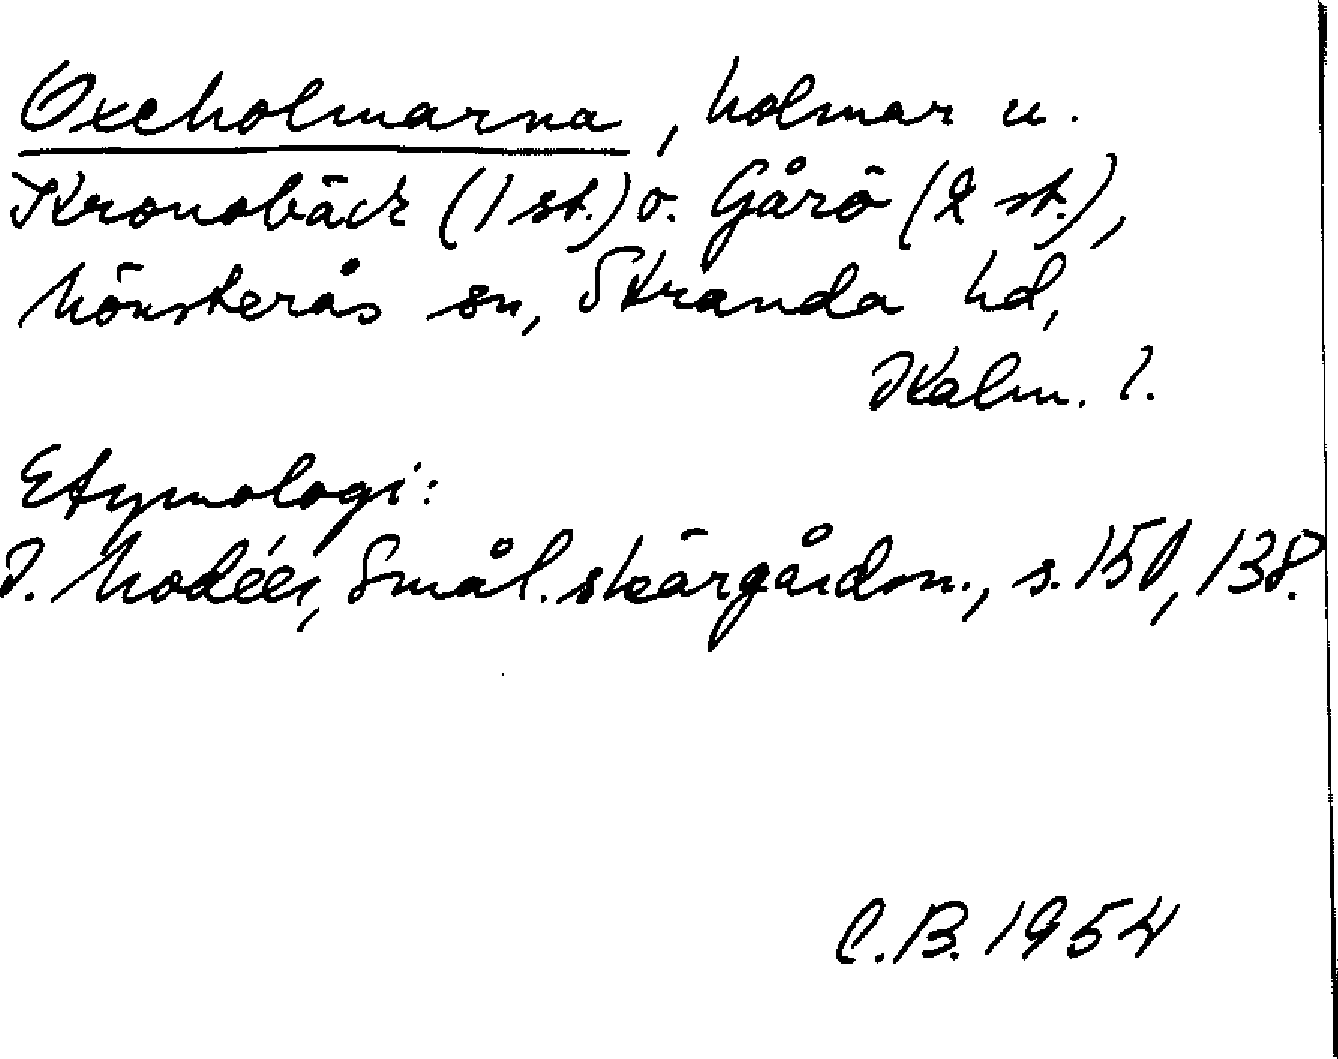 Oxeholmarna, holmar u.
Kronobäck (1 st.) o. Gårö (2 st.),
Mönsterås sn, Stranda hd,
Kalm. l.
Etymologi:
I. Modéer, Smål. skärgårdsn., s. 151, 138.
C.B. 1954